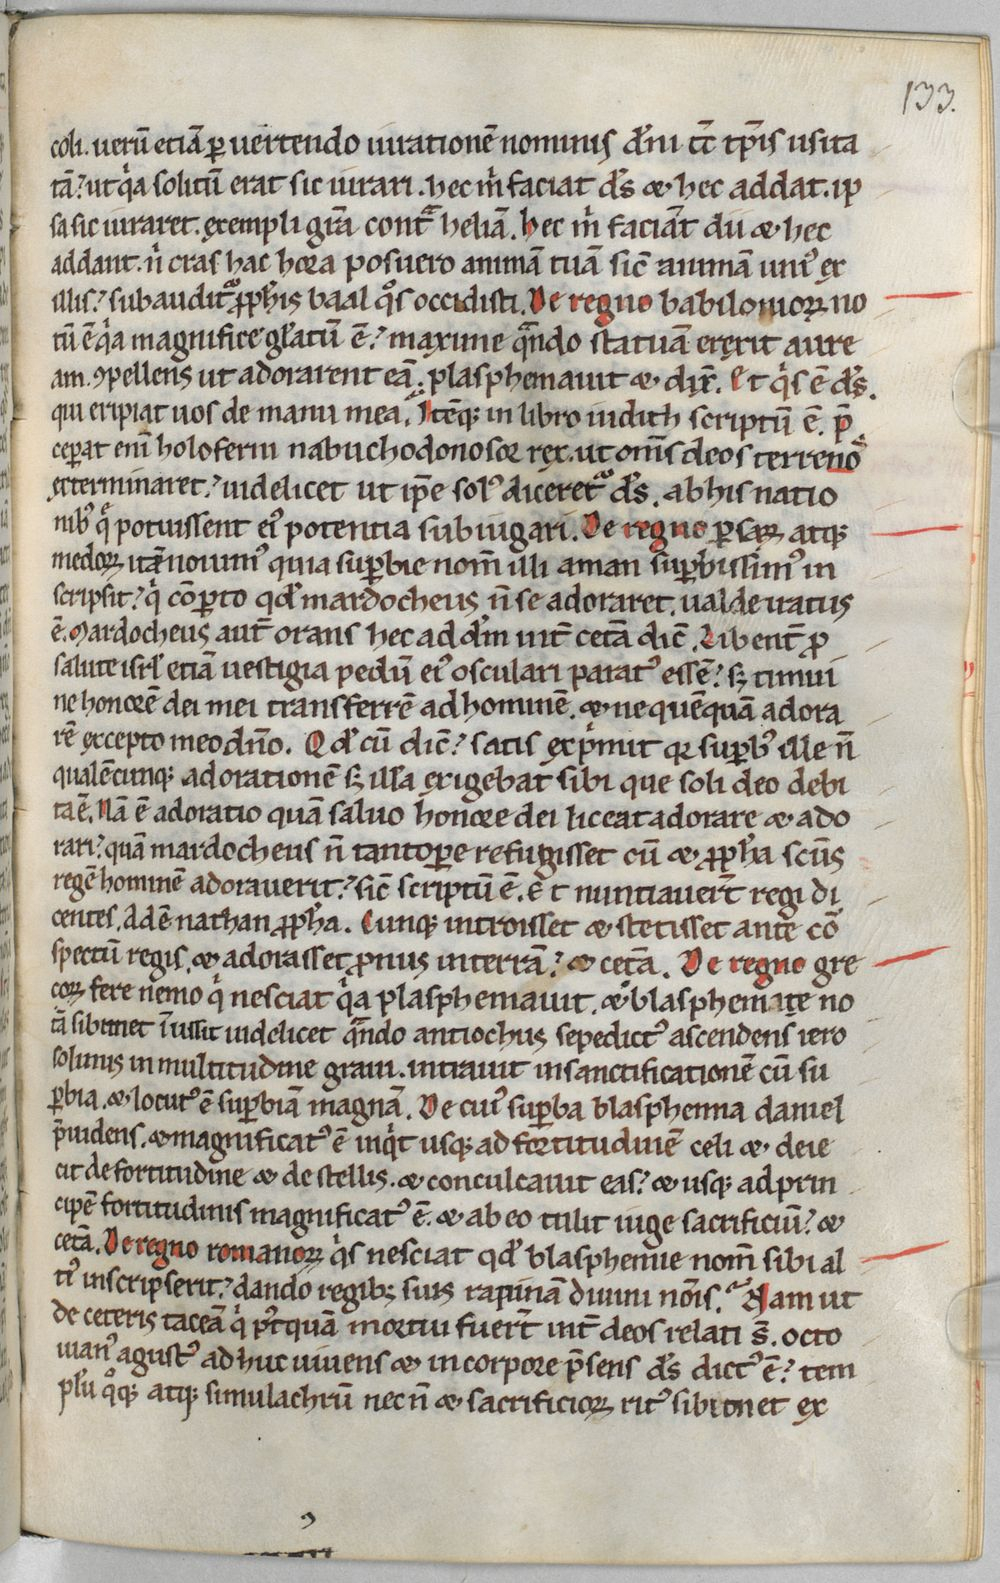 133.
coli. uerū etiā ꝑuertendo iurationē nominis dn̄i tc̄ tp̄is usita
tā? ut qͥa solitū erat sic iurari. hec m̓ faciat d̄s ⁊ hec addat. ip
sa sic iuraret. exempli gr̄a contᵃ heliā. hec m̓ faciāt dii ⁊ hec
addant. n̓ cras hac hora posuero animā tuā sic̄ animā uni᾽ ex
illis? subaudit᾽ ꝓph̄is baal qͦs occidisti. De regno babilonioꝝ no
tū ē qͥa magnifice gl̄atū ē? maxime qᵃndo statuā erexit aure
am. ꝯpellens ut adorarent eā. plasphemauit ⁊ dix̄. Et qͥs ē d̄s.
qui eripiat uos de manu mea. Itēq; in libro iudith scriptū ē. p̄
ceꝑat enī holoferni nabuchodonosor rex. ut om̄s deos terrenoͦ
exterminaret? uidelicet ut ip̄e sol᾽ diceret᾽ d̄s. ab his natio
nib᾽ qͥ potuissent ei᾽ potentia subiugari. De regno ꝑsaꝝ atq;
medoꝝ itē nouim᾽ quia suꝑbie nom̄ illi aman suꝑbissim᾽ in
scripsit? qͥ cōꝑto qd̄ mardocheus n̄ se adoraret. ualde iratus
ē. Mardocheus aut̄ orans hec ad dn̄m int̄ cet̄a dic̄. Libent̄ ꝓ
salute isrl̄ etiā uestigia pedū ei᾽ osculari parat᾽ essē? sꝫ timui
ne honorē dei mei transferrē ad hominē. ⁊ ne quēquā adora
rē excepto meo dn̄o. Qd̄ cū dic̄? satis exp̓mit qꝛ suꝑb᾽ ille n̄
qualēcunq; adorationē sꝫ illā exigebat sibi que soli deo debi
ta ē. Nā ē adoratio quā saluo honore dei liceat adorare ⁊ ado
rari? quā mardocheus n̄ tantoꝑe refugisset cū ⁊ ꝓph̄a scūs
regē hominē adorauerit? sic̄ scriptū ē. Et nuntiauer̄t regi di
centes. Adē nathan ꝓph̄a. Cunq; introisset ⁊ stetisset ante cō
spectū regis. ⁊ adorasset ꝓnus in terrā? ⁊ cet̄a. De regno gre
coꝝ fere nemo qͥ nesciat qͥa plasphemauit. ⁊ blasphemie no
tā sibimet īussit uidelicet qᵃndo antiochus sepedict᾽ ascendens iero
solimis in multitudine graui. intrauit in sanctificationē cū su
ꝑbia. ⁊ locut᾽ ē suꝑbiā magnā. De cui᾽ suꝑba blasphemia daniel
p̄uidens. ⁊ magnificat᾽ ē inqͥt usq; ad fortitudinē celi ⁊ deie
cit de fortitudine ⁊ de stellis. ⁊ conculcauit eas? ⁊ usq; ad prin
cipē fortitudinis magnificat᾽ ē. ⁊ ab eo tulit iuge sacrificiū? ⁊
cet̄a. De regno romanoꝝ qͥs nesciat qd̄ blasphemie nom̄ sibi al
ti᾽ inscripserit? dando regibꝫ suis rapinā diuini nōis. Nam ut
de ceteris taceā qͥ pᵒtquā mortui fuer̄t int̄ deos relati s̄. octo
uian᾽ agust᾽ adhuc uiuens ⁊ in corpore p̄sens d̄s dict᾽ ē? tem
plū qͦq; atq; simulachrū nec n̄ ⁊ sacrificioꝝ rit᾽ sibimet ex